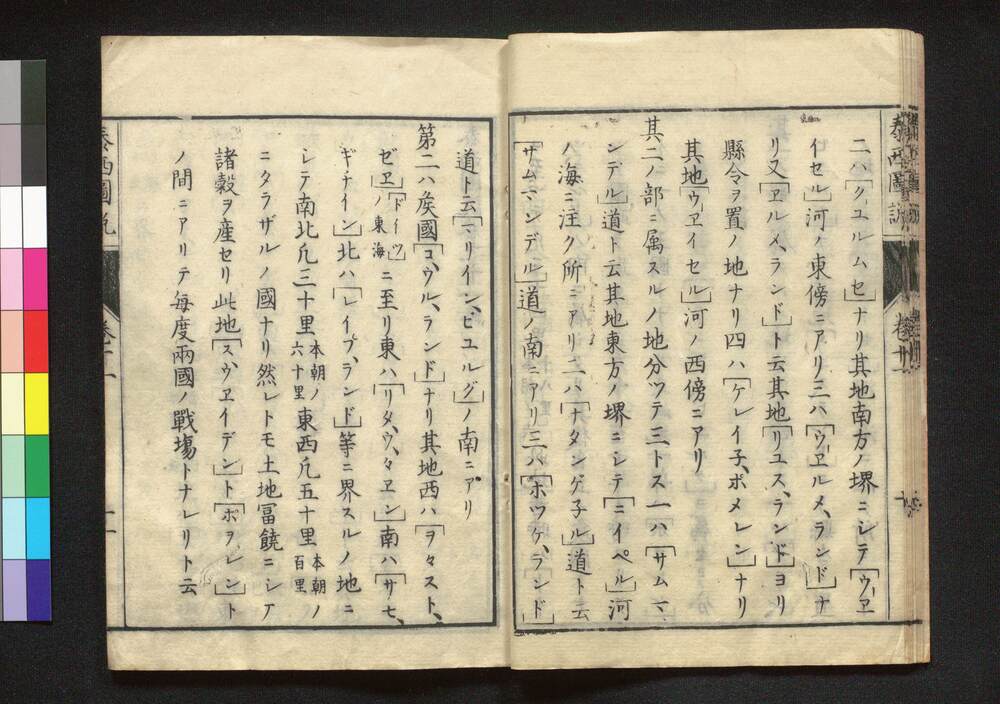 泰西圖説
卷十一
二ハ「クユルムセ」ナリ其地南方ノ堺ニシテ「ウヱ
イセル」河ノ東傍ニアリ三ハ「ウヱルメ、ランド」ナ
リ又「ヱルメ、ランド」ト云其地「リユス、ランド」ヨリ
縣令ヲ置ノ地ナリ四ハ「ケレイ子、ポメレン」ナリ
其地「ウヱイセル」河ノ西傍ニアリ
其二ノ部ニ属スルノ地分ツテ三トス一ハ「サムマ、
ンデル」道ト云其地東方ノ堺ニシテ「ニイペル」河
ノ海ニ注ク所ニアリ二ハ「ナタンゲ子ル」道ト云
「サムマンデル」道ノ南ニアリ三ハ「ホツケ、ランド」
道ト云「マリイン、ビユルグ」ノ南ニアリ
第二ハ矦國「コ、ウル、ランド」ナリ其地西ハ「ヲヽスト、
ゼヱ」「ドイツ」ノ東海ニ至リ東ハ「リタ、ウ、ヱン」南ハ「サモ、
ギチイン」北ハ「レイフ、ランド」等ニ界スルノ地ニ
シテ南北凡三十里本朝ノ六十里東西凡五十里本朝ノ百里
ニタラザルノ國ナリ然レトモ土地冨饒ニシテ
諸穀ヲ産セリ此地「ス、ウヱイデン」ト「ポヲレン」ト
ノ間ニアリテ毎度兩國ノ戰塲トナレリト云
泰西圖説
卷十一